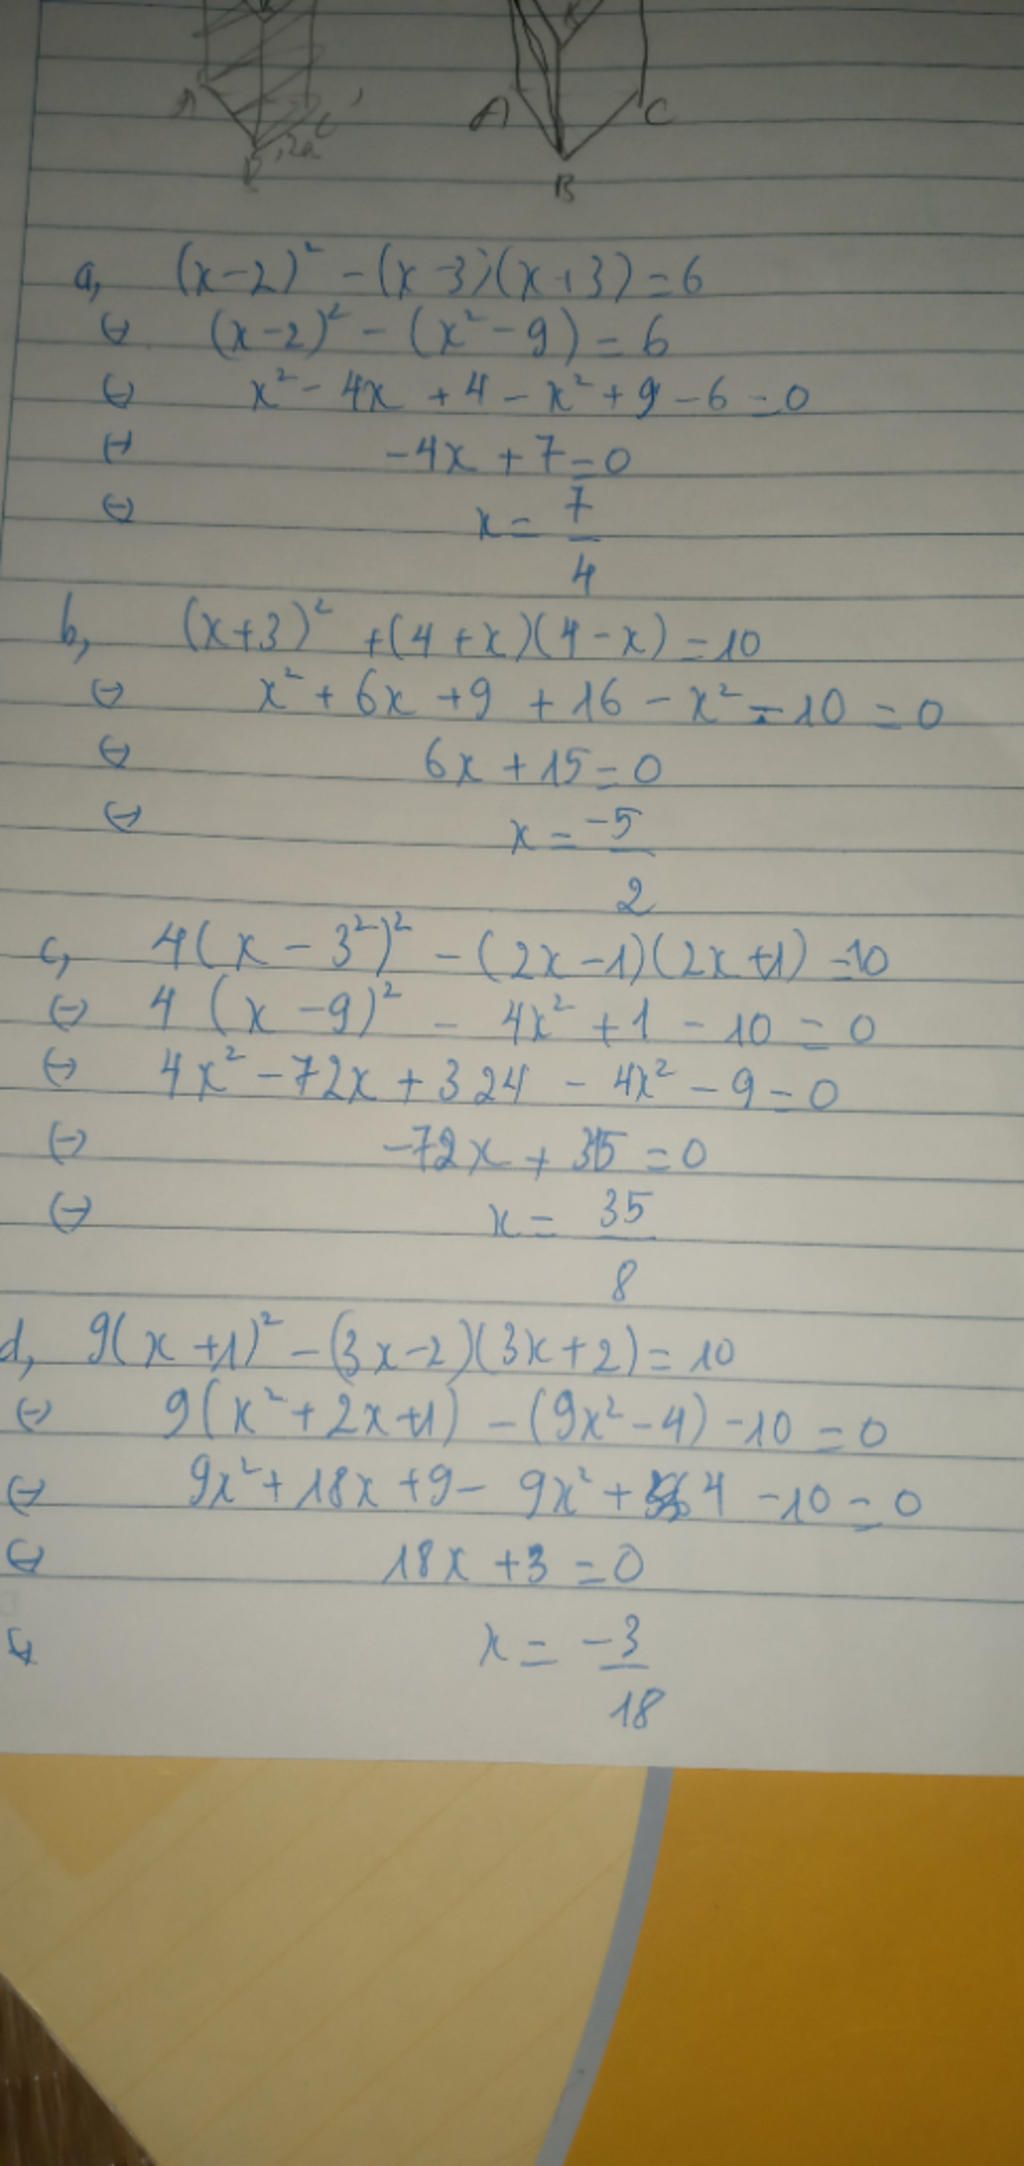 A B C
A B C
a, (x-2)² - (x-3)(x+3) = 6
⇔ (x-2)² - (x²-9) = 6
⇔ x² - 4x + 4 - x² + 9 - 6 = 0
⇔ -4x + 7 = 0
⇔ x = 7/4
b, (x+3)² + (4+x)(4-x) = 10
⇔ x² + 6x + 9 + 16 - x² - 10 = 0
⇔ 6x + 15 = 0
⇔ x = -5/2
c, 4(x - 3²)² - (2x-1)(2x+1) = 10
⇔ 4(x-9)² - 4x² + 1 - 10 = 0
⇔ 4x² - 72x + 324 - 4x² - 9 = 0
⇔ -72x + 315 = 0
⇔ x = 35/8
d, 9(x+1)² - (3x-2)(3x+2) = 10
⇔ 9(x² + 2x + 1) - (9x² - 4) - 10 = 0
⇔ 9x² + 18x + 9 - 9x² + 4 - 10 = 0
⇔ 18x + 3 = 0
⇔ x = -3/18